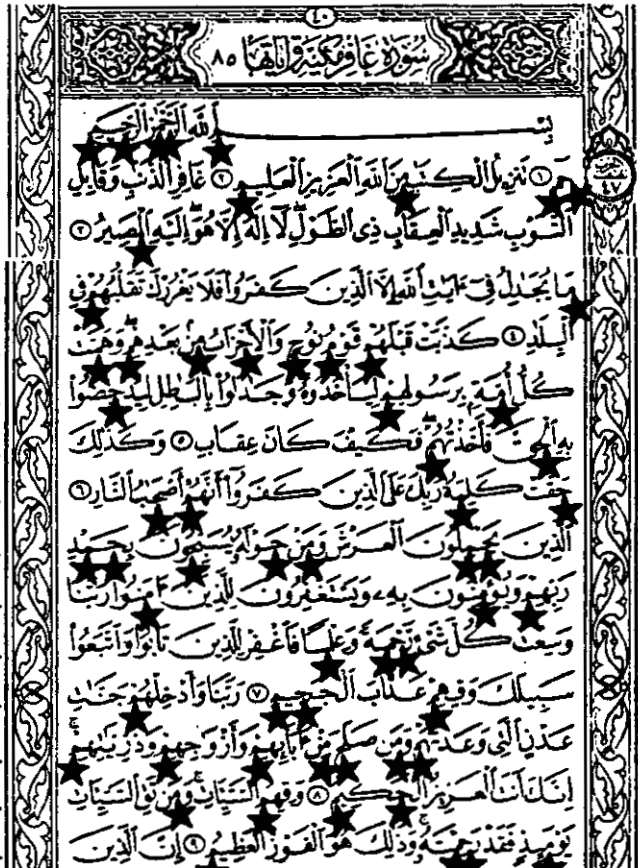 ٤٠
سُورَةُ غَافِرٍ مَكِّيَّة وَآيَاتُهَا ٨٥
بِسْمِ ٱللَّهِ ٱلرَّحْمَٰنِ ٱلرَّحِيمِ
حمٓ ۝١ تَنزِيلُ ٱلْكِتَٰبِ مِنَ ٱللَّهِ ٱلْعَزِيزِ ٱلْعَلِيمِ ۝٢ غَافِرِ ٱلذَّنۢبِ وَقَابِلِ
ٱلتَّوْبِ شَدِيدِ ٱلْعِقَابِ ذِى ٱلطَّوْلِ لَآ إِلَٰهَ إِلَّا هُوَ إِلَيْهِ ٱلْمَصِيرُ ۝٣
مَا يُجَٰدِلُ فِىٓ ءَايَٰتِ ٱللَّهِ إِلَّا ٱلَّذِينَ كَفَرُوا۟ فَلَا يَغْرُرْكَ تَقَلُّبُهُمْ فِى
ٱلْبِلَٰدِ ۝٤ كَذَّبَتْ قَبْلَهُمْ قَوْمُ نُوحٍ وَٱلْأَحْزَابُ مِنۢ بَعْدِهِمْ وَهَمَّتْ
كُلُّ أُمَّةٍۭ بِرَسُولِهِمْ لِيَأْخُذُوهُ وَجَٰدَلُوا۟ بِٱلْبَٰطِلِ لِيُدْحِضُوا۟
بِهِ ٱلْحَقَّ فَأَخَذْتُهُمْ فَكَيْفَ كَانَ عِقَابِ ۝٥ وَكَذَٰلِكَ
حَقَّتْ كَلِمَتُ رَبِّكَ عَلَى ٱلَّذِينَ كَفَرُوٓا۟ أَنَّهُمْ أَصْحَٰبُ ٱلنَّارِ ۝٦
ٱلَّذِينَ يَحْمِلُونَ ٱلْعَرْشَ وَمَنْ حَوْلَهُۥ يُسَبِّحُونَ بِحَمْدِ
رَبِّهِمْ وَيُؤْمِنُونَ بِهِۦ وَيَسْتَغْفِرُونَ لِلَّذِينَ ءَامَنُوا۟ رَبَّنَا
وَسِعْتَ كُلَّ شَىْءٍ رَّحْمَةً وَعِلْمًا فَٱغْفِرْ لِلَّذِينَ تَابُوا۟ وَٱتَّبَعُوا۟
سَبِيلَكَ وَقِهِمْ عَذَابَ ٱلْجَحِيمِ ۝٧ رَبَّنَا وَأَدْخِلْهُمْ جَنَّٰتِ
عَدْنٍ ٱلَّتِى وَعَدتَّهُمْ وَمَن صَلَحَ مِنْ ءَابَآئِهِمْ وَأَزْوَٰجِهِمْ وَذُرِّيَّٰتِهِمْ
إِنَّكَ أَنتَ ٱلْعَزِيزُ ٱلْحَكِيمُ ۝٨ وَقِهِمُ ٱلسَّيِّـَٔاتِ وَمَن تَقِ ٱلسَّيِّـَٔاتِ
يَوْمَئِذٍ فَقَدْ رَحِمْتَهُۥ وَذَٰلِكَ هُوَ ٱلْفَوْزُ ٱلْعَظِيمُ ۝٩ إِنَّ ٱلَّذِينَ
٤٧